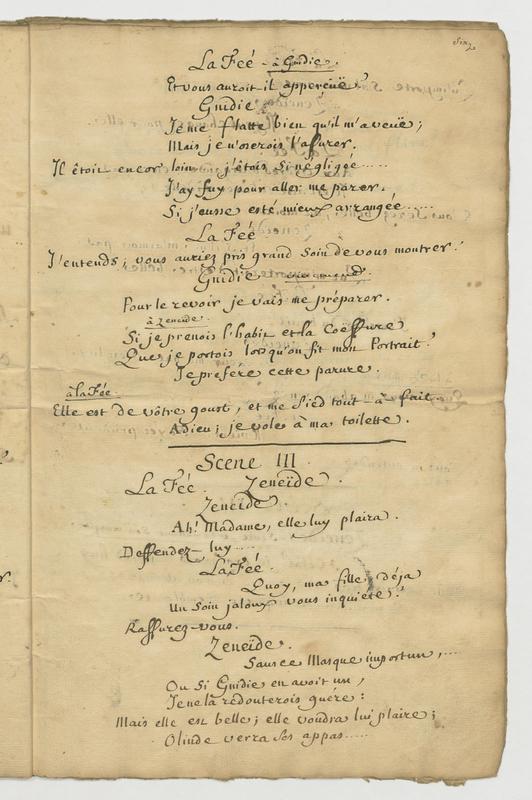 Six
La Feé - à Gnidie.
Et vous auroit il apperçeüe?
Gnidie.
Je me flatte bien qu'il m'a veüe;
Mais je n'oserois l'assurer.
Il étoit encor loin ... j'étois si négligée .....
J'ay fuy pour aller me parer.
Si j'eusse esté mieux arrangée .....
La Feé.
J'entends; vous auriez pris grand Soin de vous montrer!
Gnidie
Pour le revoir je vais me préparer.
à Zeneïde.
Si je prenois l'habit et la Coëffure
Que je portois lorsqu'on fit mon Portrait?
Je préfére cette parure.
à la Feé.
Elle est de vôtre goust, et me Sied tout-à fait.
Adieu; je vole à ma toilette.
Scene III.
La Feé. Zeneïde.
Zeneïde.
Ah! Madame, elle luy plaira.
Deffendez-luy ....
La Feé.
Quoy, ma fille, déja
Un Soin jaloux vous inquiete?
Rassurez-vous.
Zeneïde.
Sans ce Masque importun, ....
Ou Si Gnidie en avoit un,
Je ne la redouterois guére:
Mais elle est belle; elle voudra lui plaire;
Olinde verra Ses appas .....